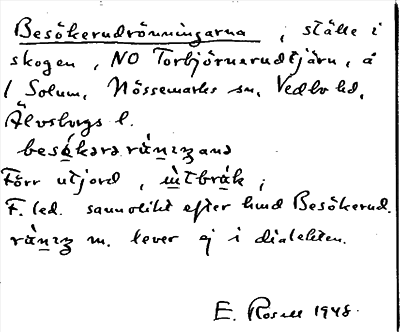 Besökerudrönningarna, ställe i
skogen, NO Torbjörnerudtjärn, å
1 Solum, Nössemarks sn, Vedbo hd,
Älvsborgs l.
Förr utjord,
F. led. sannolikt efter hmd Besökerud.
m. lever ej i dialekten.
E. Rosell 1948.